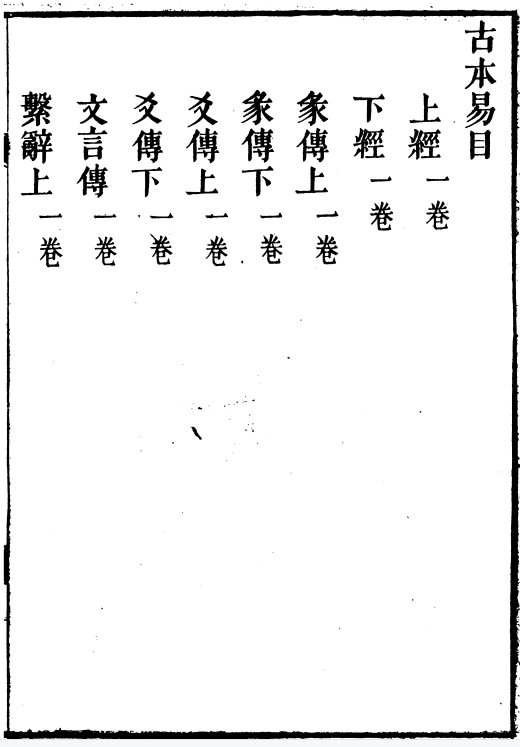 古本易目
上經一卷
下經一卷
彖傳上一卷
彖傳下一卷
爻傳上一卷
爻傳下一卷
文言傳一卷
繫辭上一卷